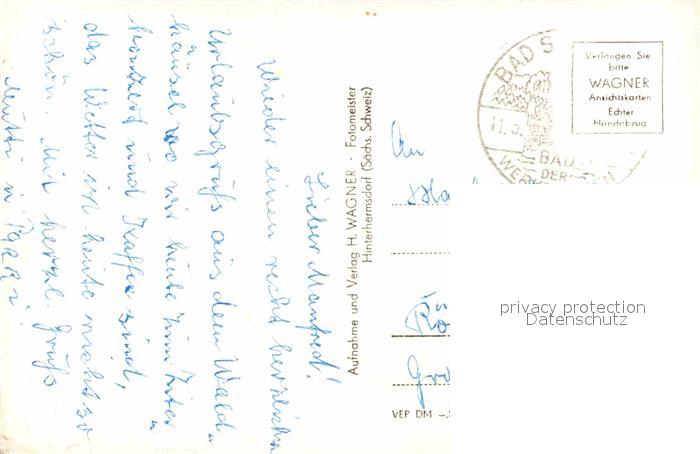 Lieber Manfred!
Wieder einen recht herzlichen
Urlaubsgruß aus dem Wald-
häusel wo wir heute zum Unter
konzert und Kaffee sind,
das Wetter ist heute nicht so
schön. Mit herzl. Gruß
Mutti u. Pappi.
Aufnahme und Verlag H. WAGNER · Fotomeister
Hinterhermsdorf (Sächs. Schweiz)
BAD S
11.5.
BAD
DER
WER
Verlangen Sie
bitte
WAGNER
Ansichtskarten
Echter
Handabzug
An
privacy protection
Datenschutz
VEP DM –,